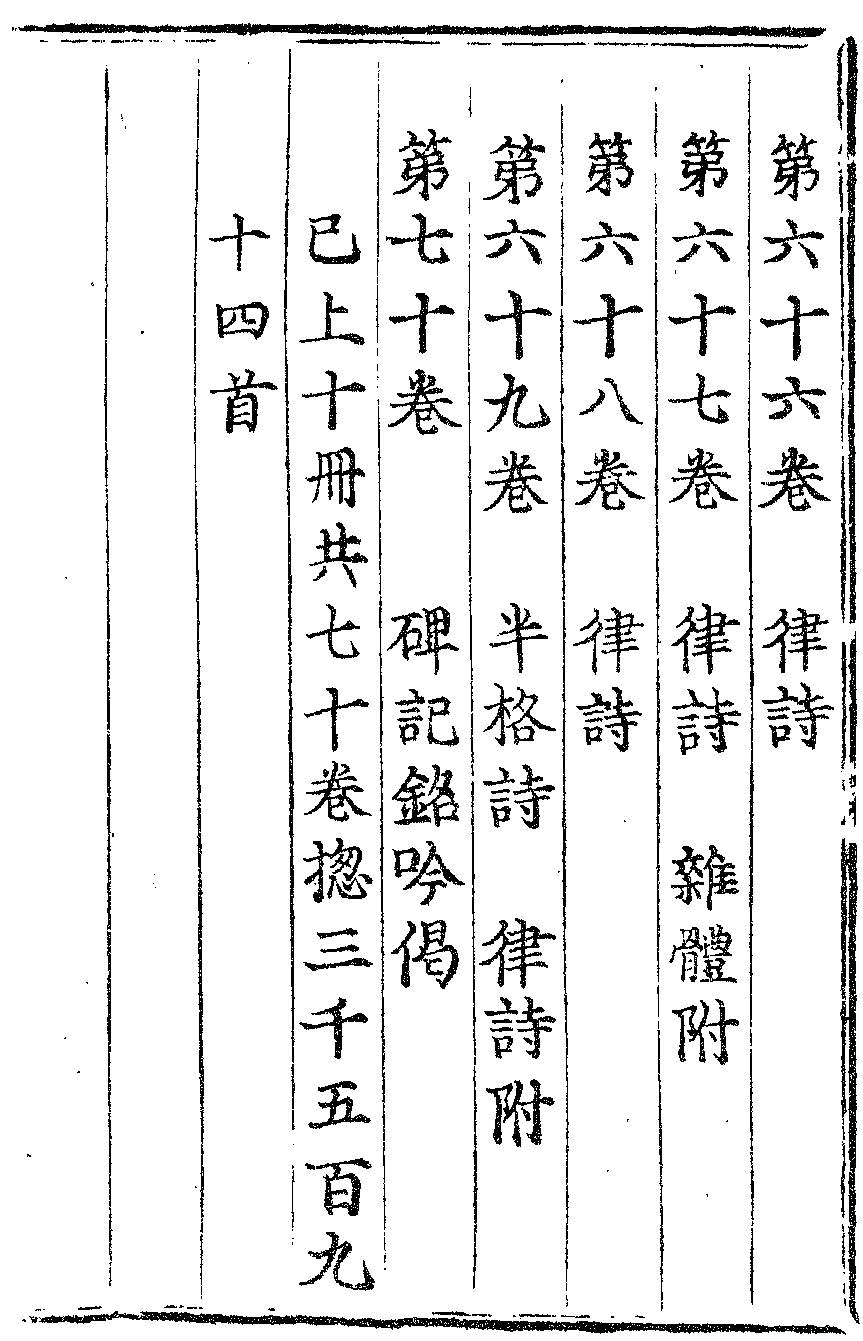 第六十六卷　律詩
第六十七卷　律詩　雜體附
第六十八卷　律詩
第六十九卷　半格詩　律詩附
第七十卷　碑記銘吟偈
已上十冊共七十卷揔三千五百九
十四首